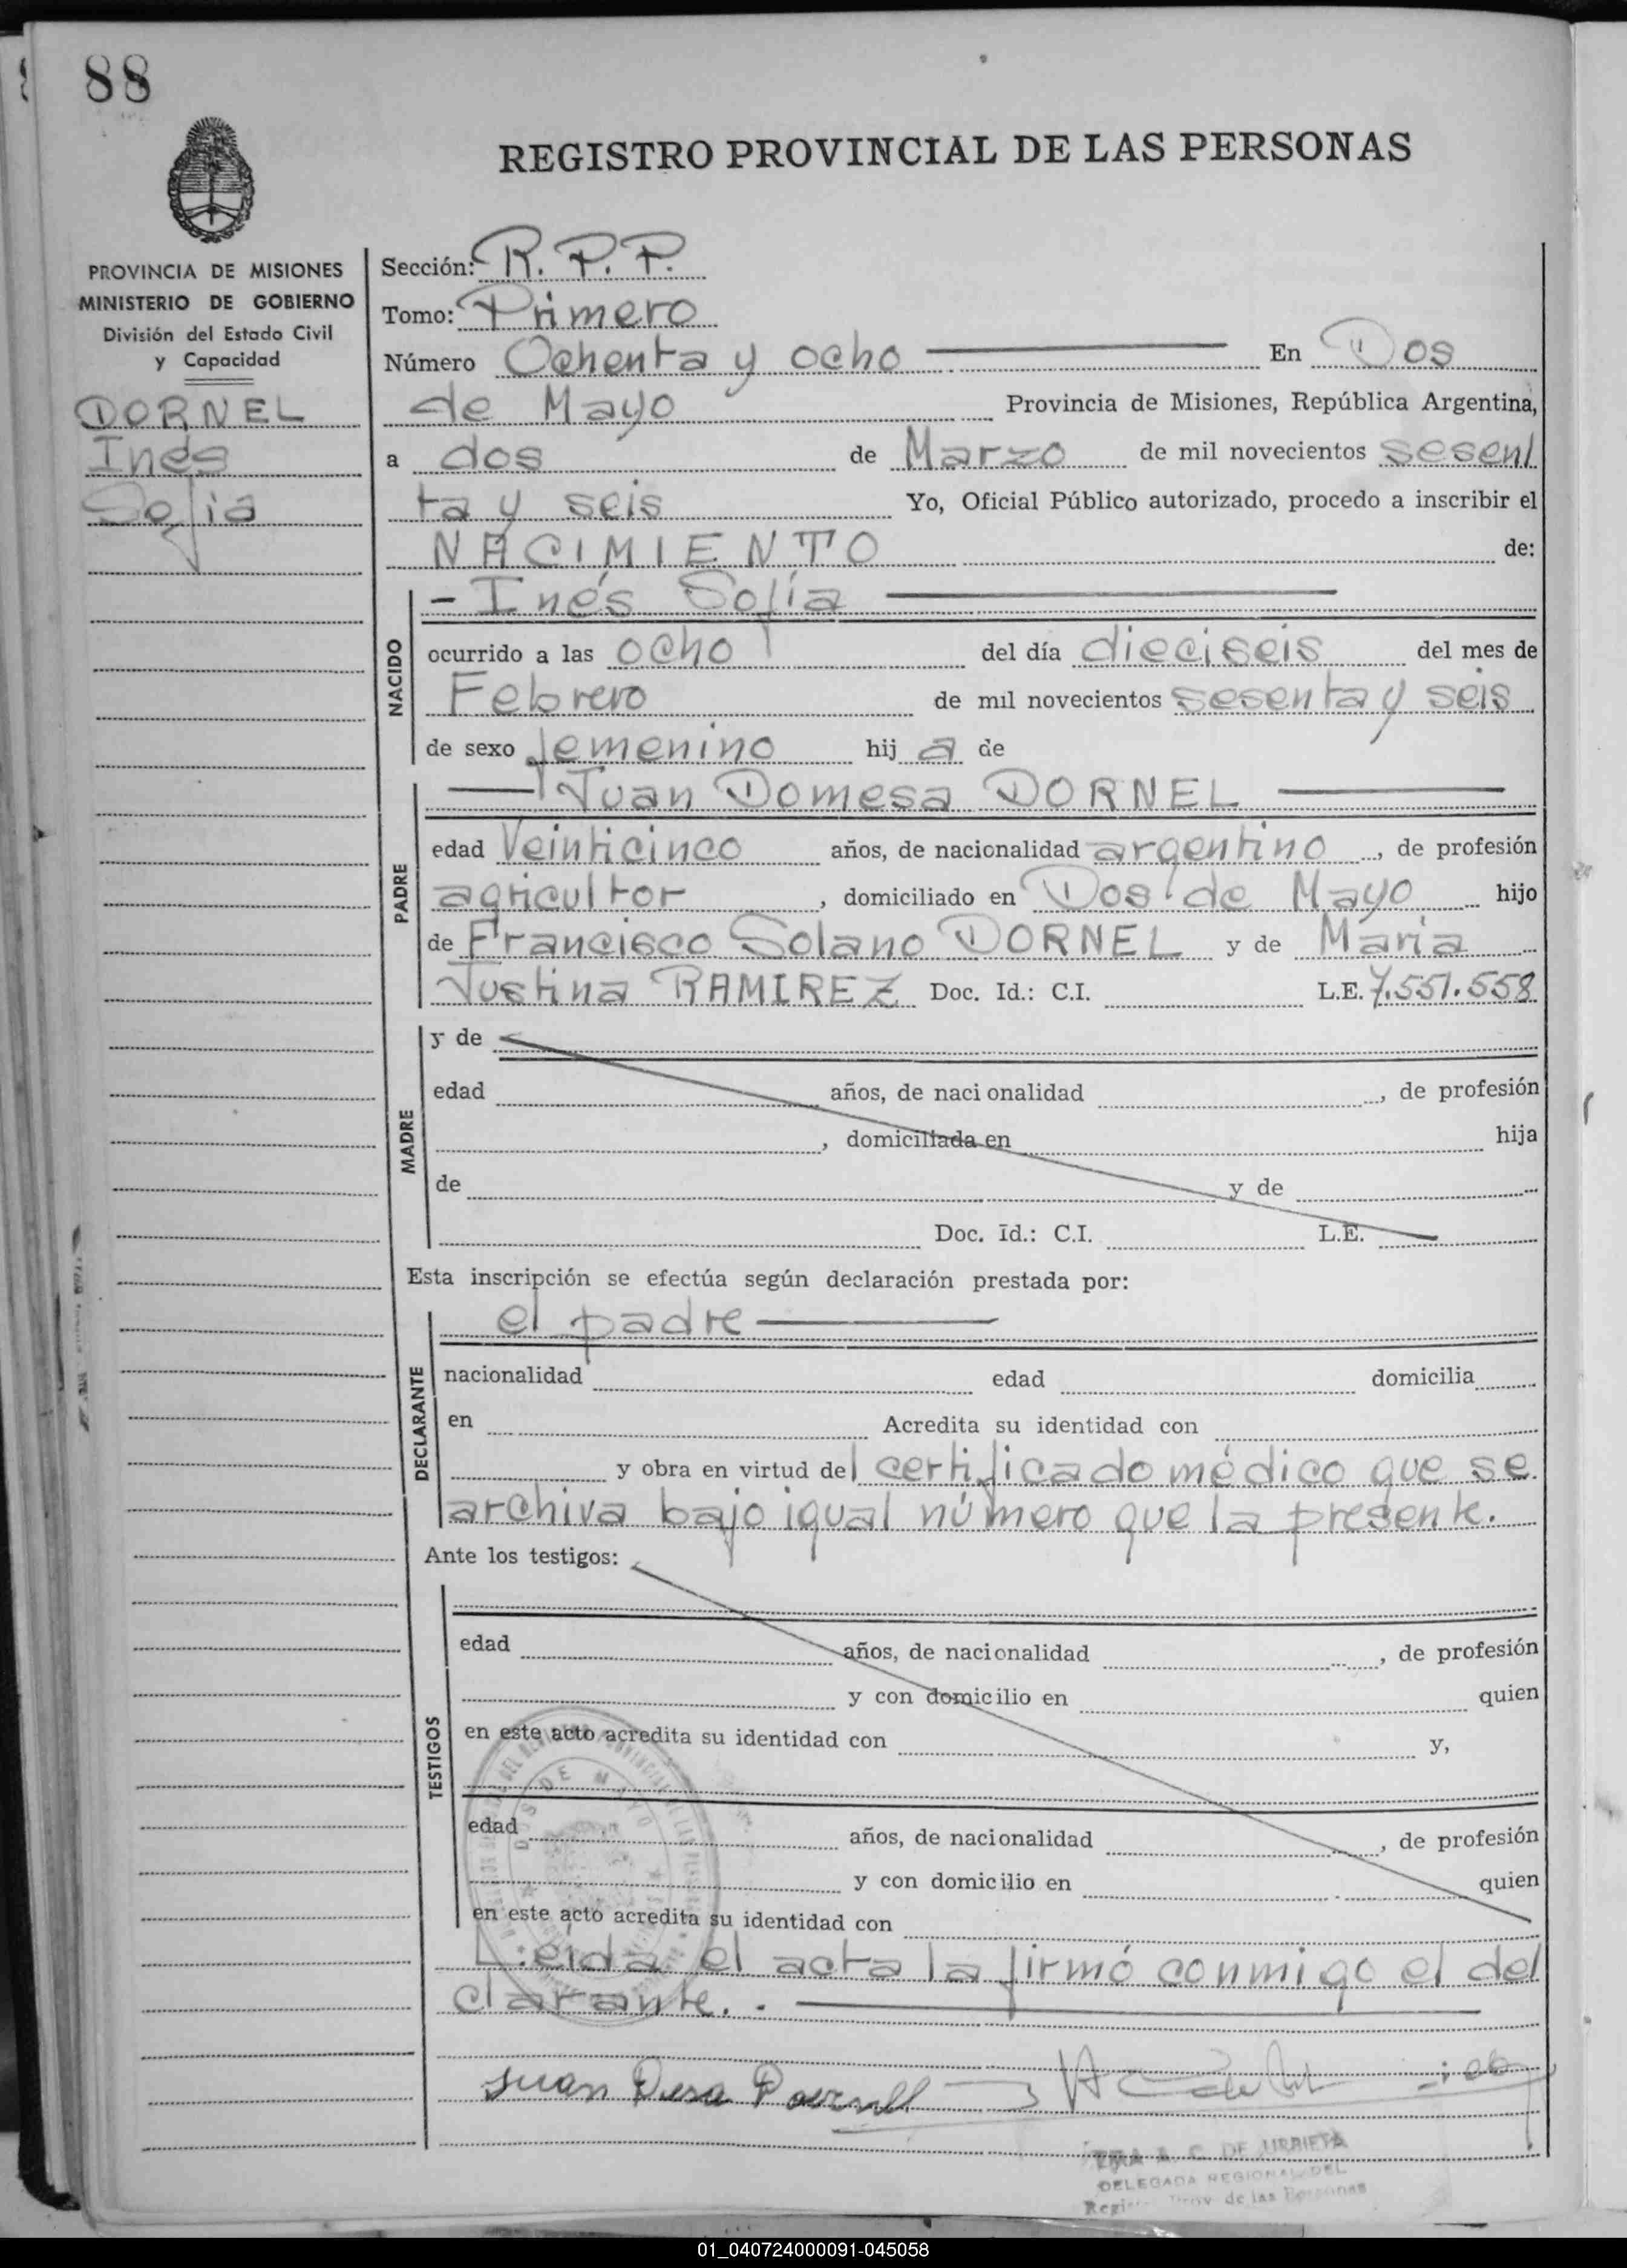 88
REGISTRO PROVINCIAL DE LAS PERSONAS
PROVINCIA DE MISIONES
MINISTERIO DE GOBIERNO
División del Estado Civil
y Capacidad
DORNEL
Inés
Sofia
Sección: R. P. P.
Tomo: Primero
Número Ochenta y ocho En Dos
de Mayo Provincia de Misiones, República Argentina,
a dos de Marzo de mil novecientos sesen
ta y seis Yo, Oficial Público autorizado, procedo a inscribir el
NACIMIENTO de:
NACIDO
- Inés Sofía
ocurrido a las ocho del día dieciseis del mes de
Febrero de mil novecientos sesenta y seis
de sexo femenino hij a de
PADRE
Juan Domesa DORNEL
edad Veinticinco años, de nacionalidad argentino, de profesión
agricultor, domiciliado en Dos de Mayo hijo
de Francisco Solano DORNEL y de María
Justina RAMIREZ Doc. Id.: C.I. L.E. 7.551.558
MADRE
y de
edad años, de nacionalidad , de profesión
, domiciliada en hija
de y de
Doc. Id.: C.I. L.E.
Esta inscripción se efectúa según declaración prestada por:
DECLARANTE
el padre
nacionalidad edad domicilia
en Acredita su identidad con
y obra en virtud del certificado médico que se
archiva bajo igual número que la presente.
Ante los testigos:
TESTIGOS
edad años, de nacionalidad , de profesión
y con domicilio en quien
en este acto acredita su identidad con y,
edad años, de nacionalidad , de profesión
y con domicilio en quien
en este acto acredita su identidad con
DOS DE MAYO
Leida el acta la firmó conmigo el de
clarante. .
Juan
A. C. DE URRIETA
DELEGADA REGIONAL DEL
de las Personas
01_040724000091-045058